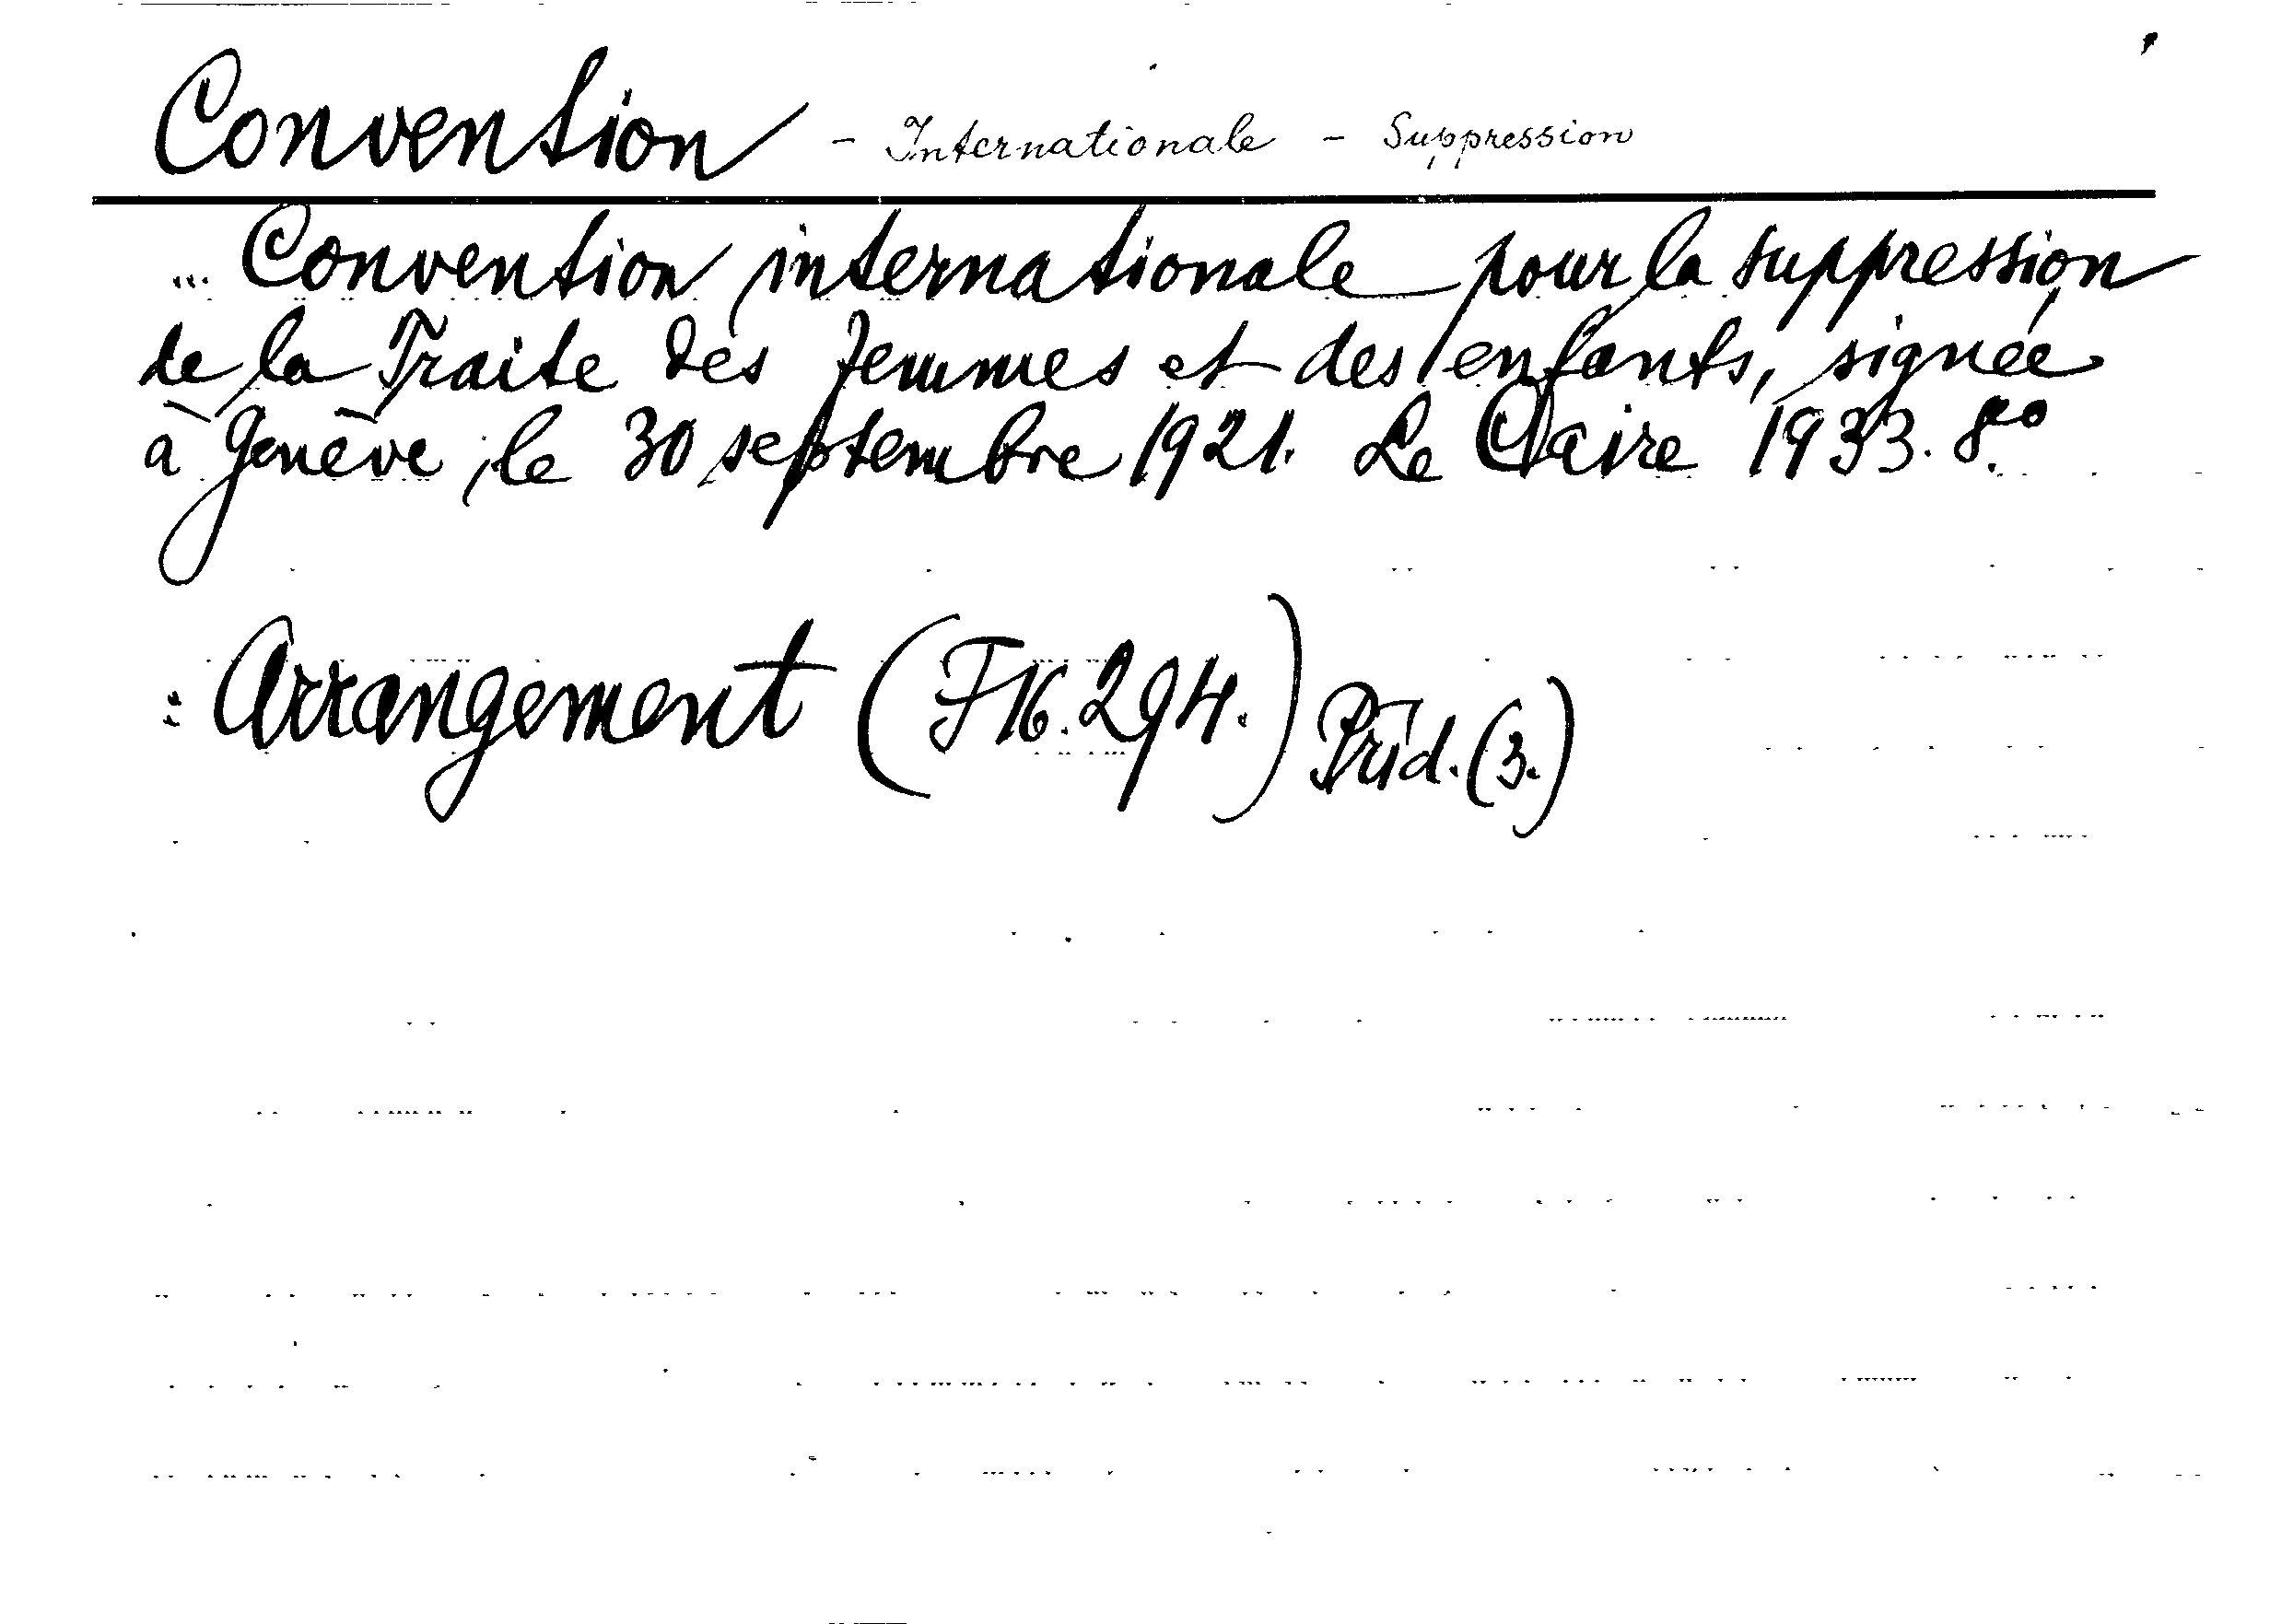 Convention - Internationale - Suppression
... Convention internationale pour la suppression
de la Traite des femmes et des enfants, signée
à Genève, le 30 septembre 1921. Le Claire 1933. 8°.
: Arrangement (F16.294.) Präd. (3.)